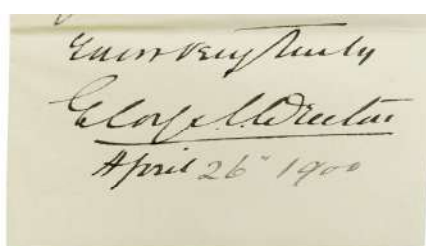 Yours very truly
George
April 26" 1900